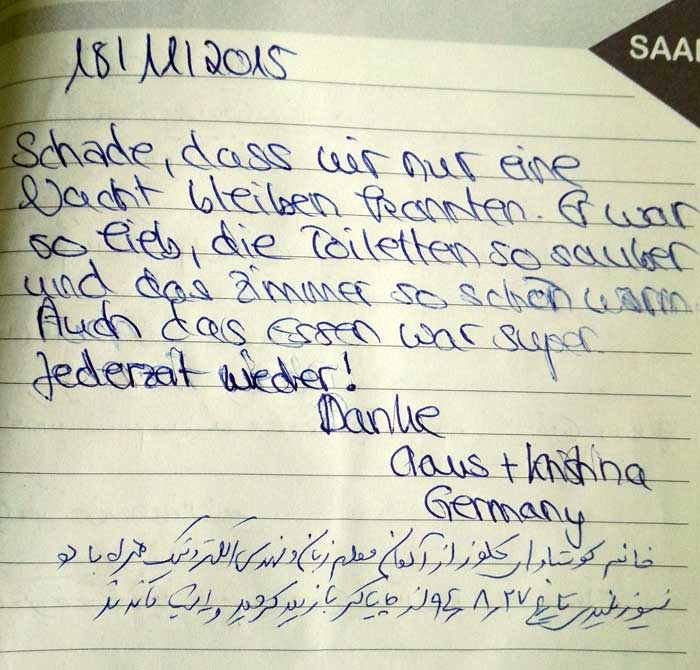 SAA
18/11/2015
Schade, dass wir nur eine
Nacht bleiben konnten. Er war
so lieb, die Toiletten so sauber
und das Zimmer so schön warm
Auch das Essen war super
Jederzeit wieder!
Danke
Claus + Krishna
Germany
خانم از آلمان معلم زبان و مهندس الکترونیک همراه با دو
تاریخ ۸،۲۷ از بازدید کردید و